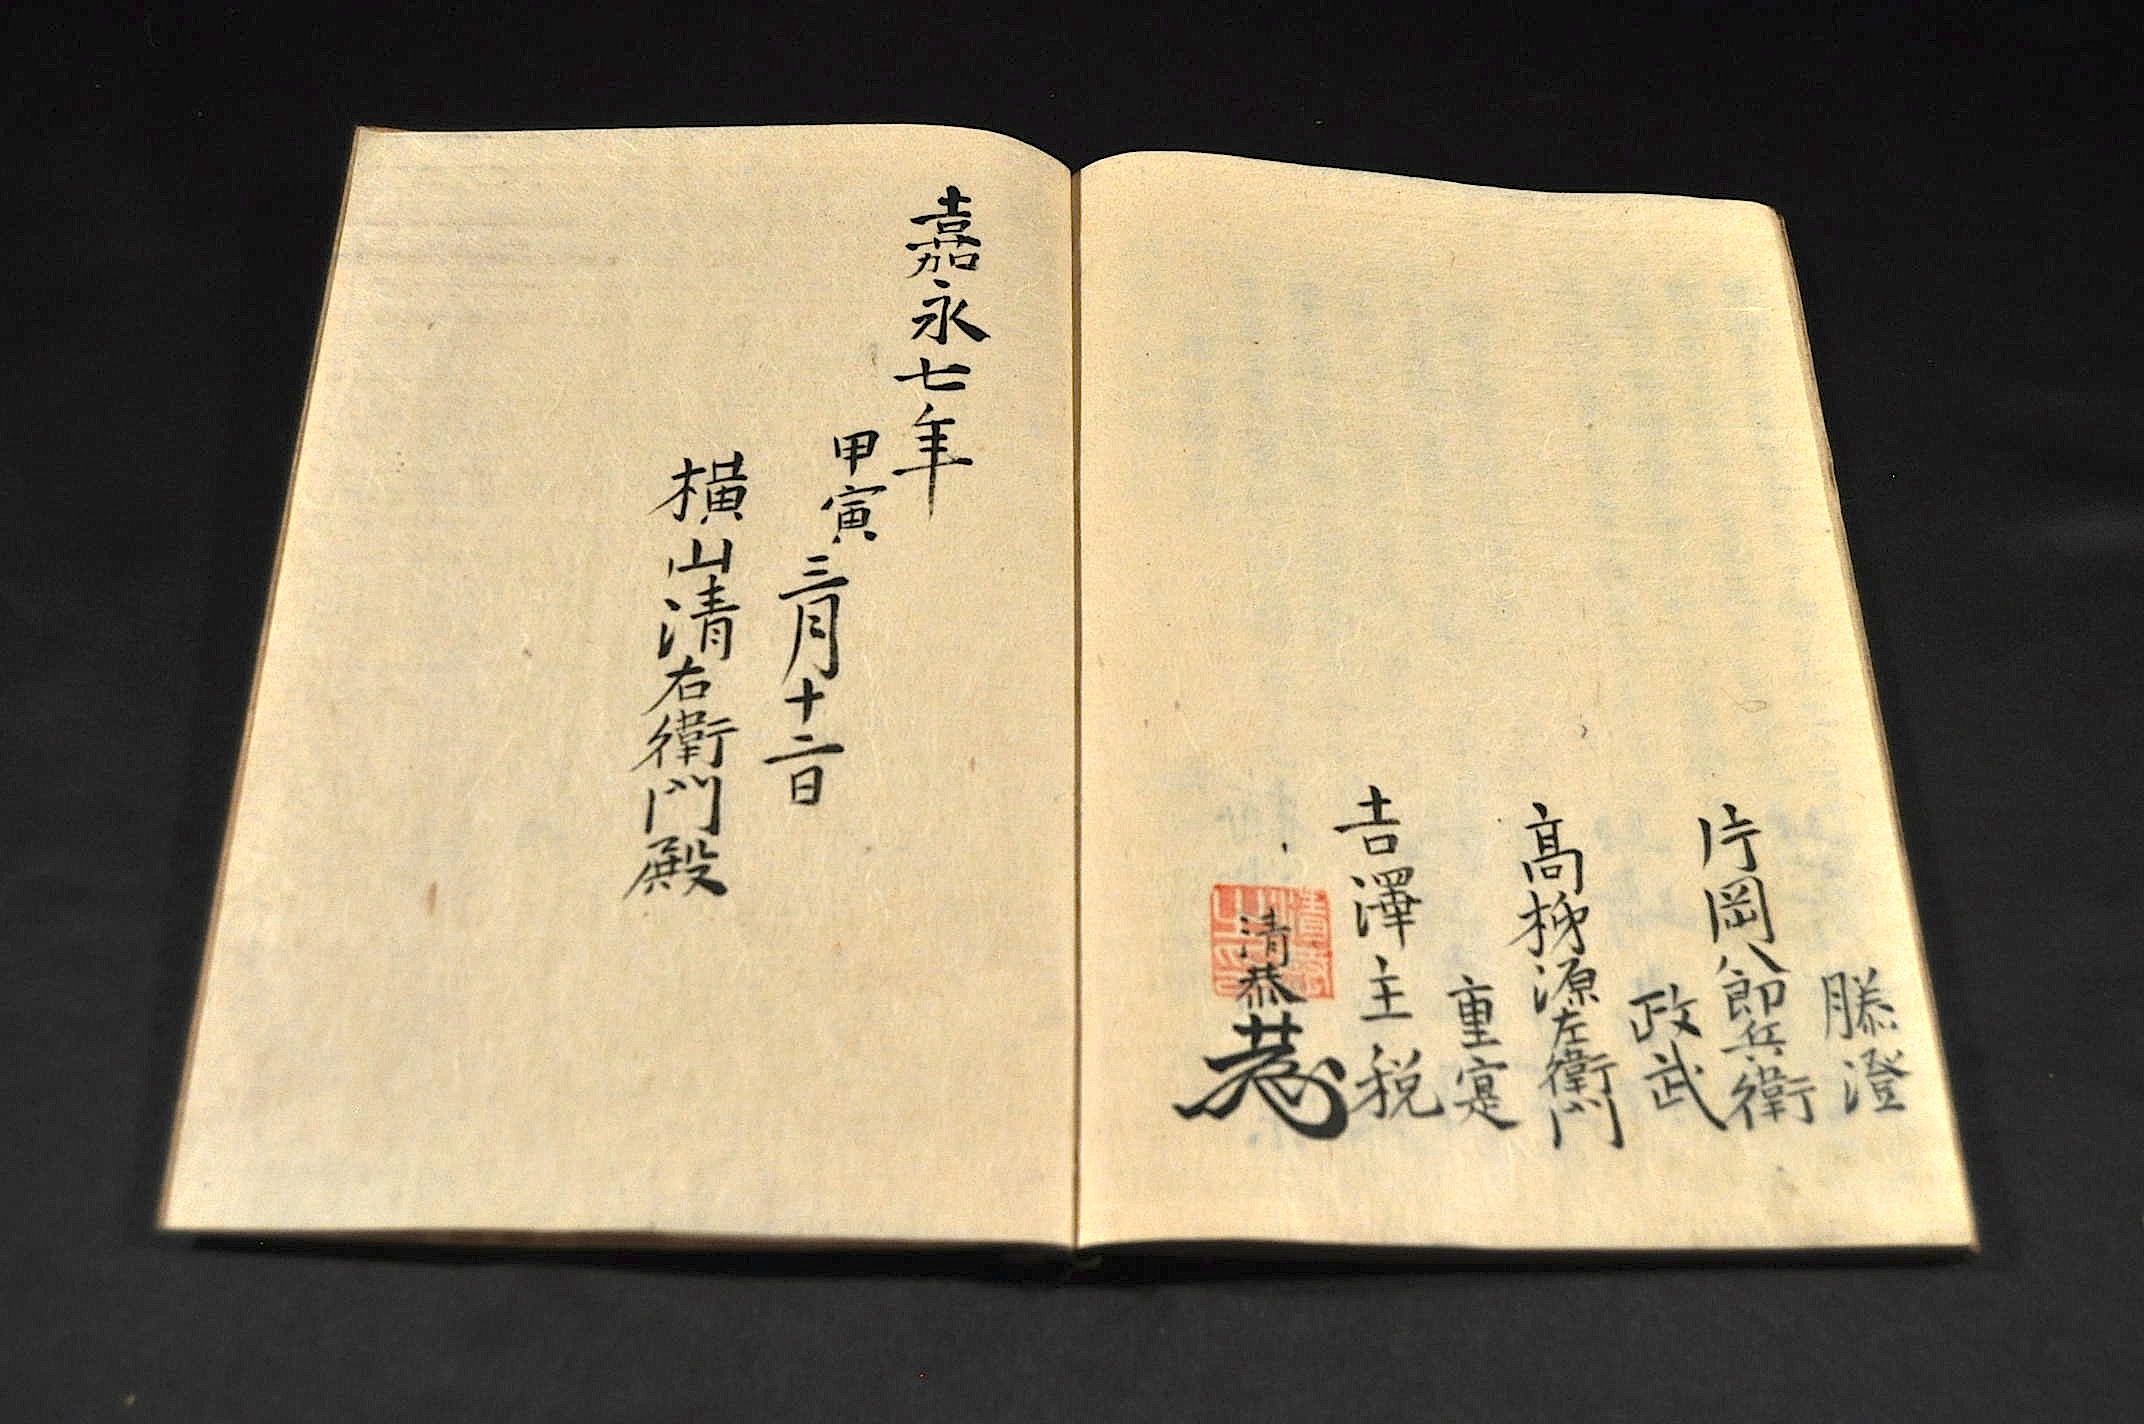 勝澄
片岡八郎兵衛
政武
高栁源左衛門
重寔
吉澤主税
清恭
嘉永七年
甲寅
三月十二日
横山清右衛門殿